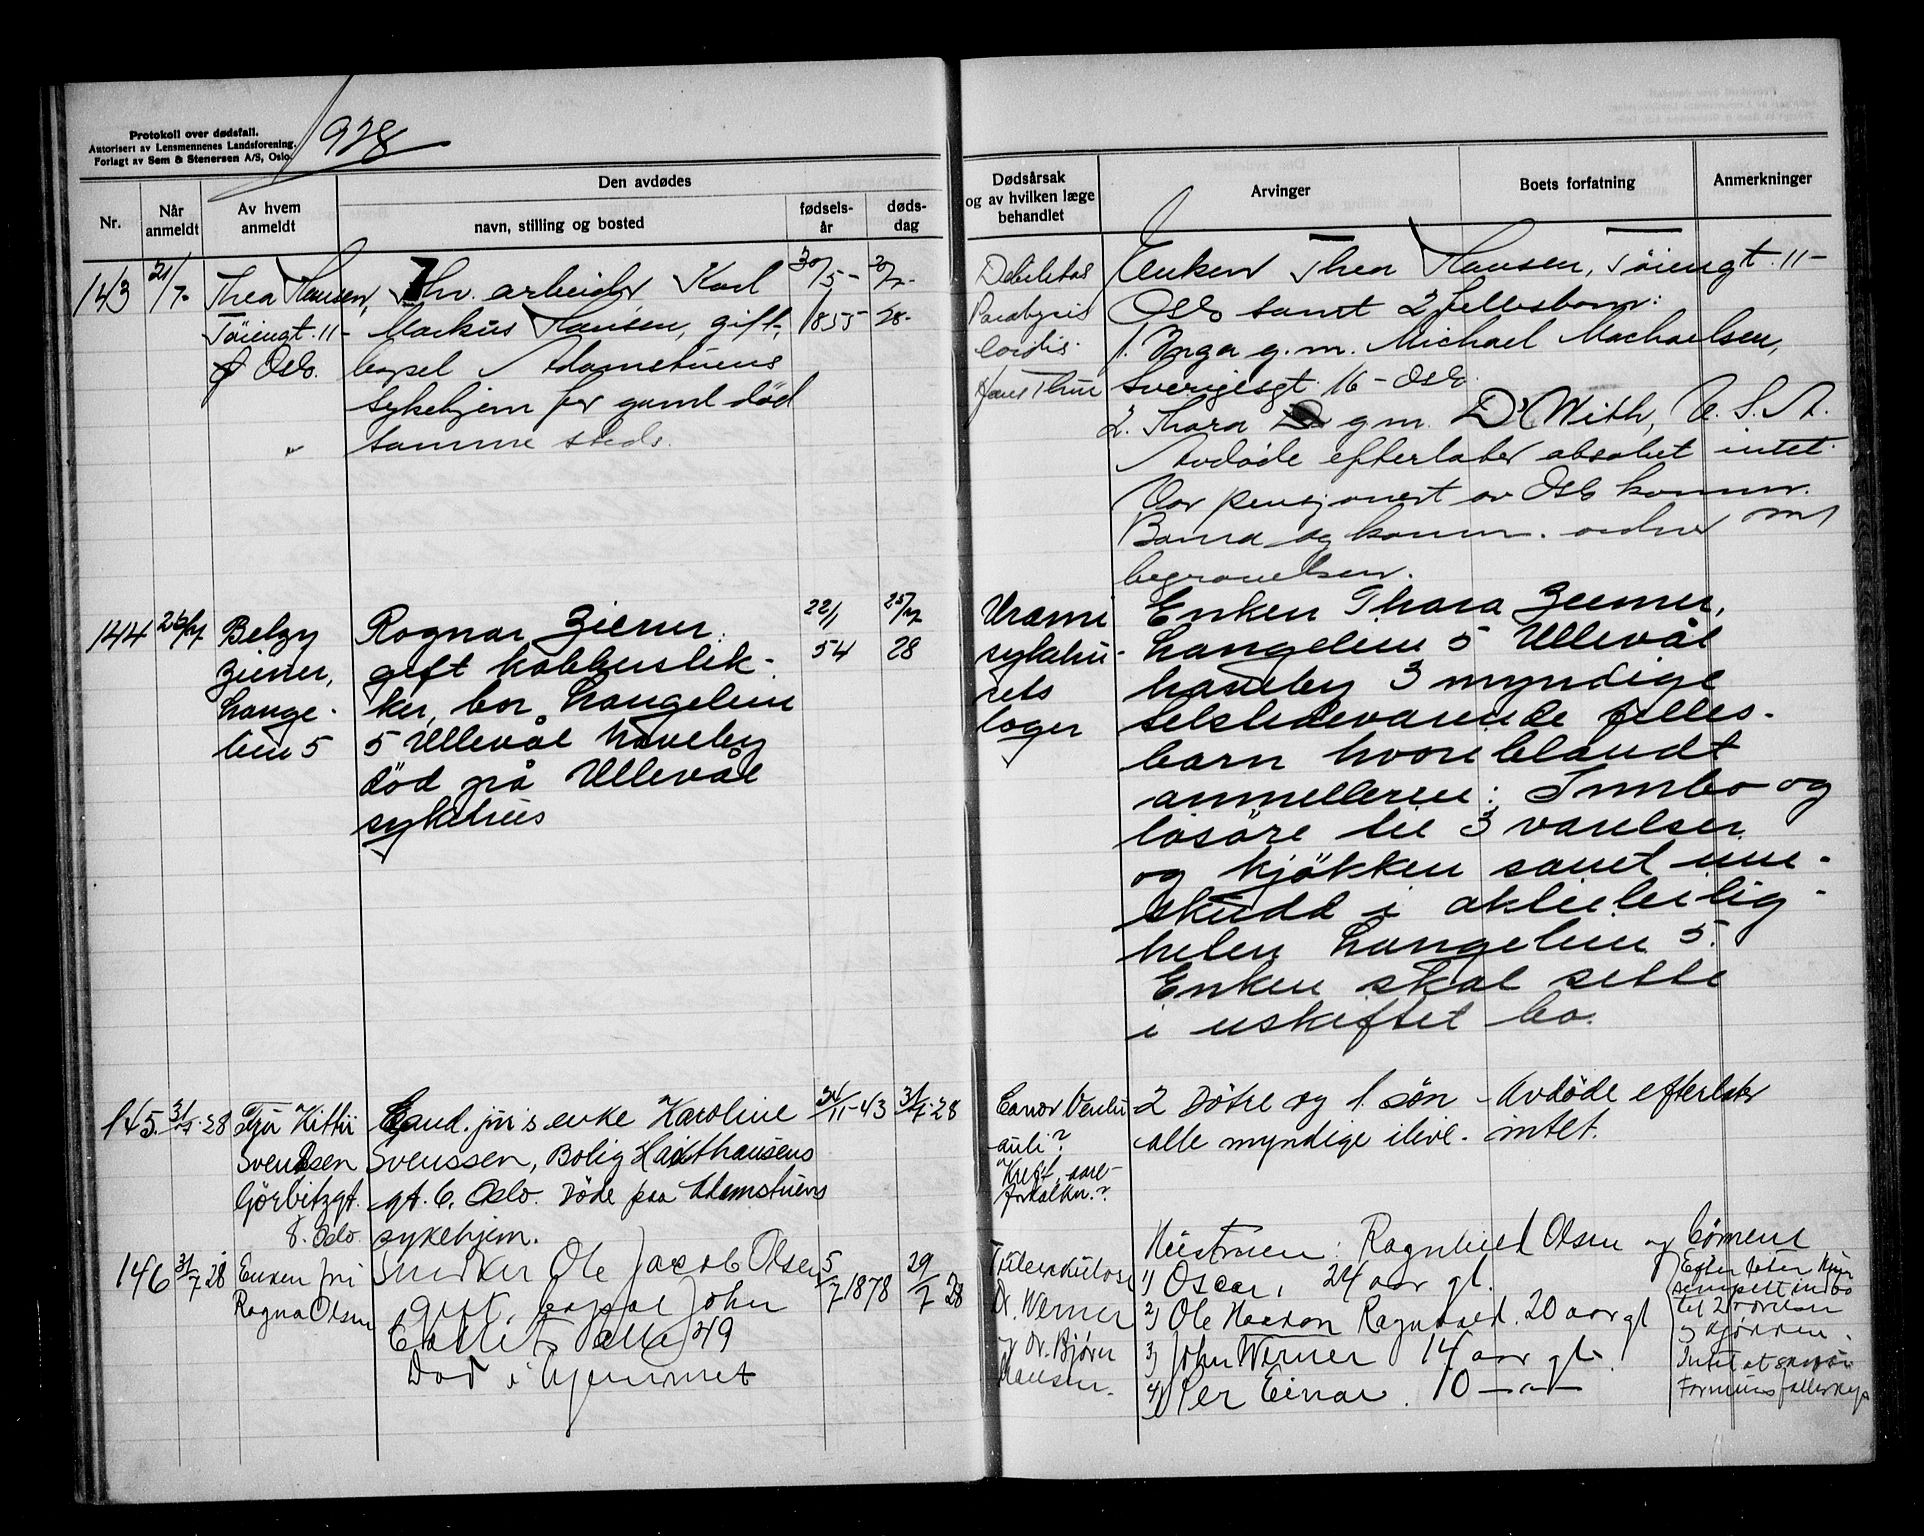 Protokoll over dødsfall.
Autorisert av Lensmennenes Landsforening.
Forlagt av Sem & Stenersen A/S, Oslo.
1928
Nr.
Når anmeldt
Av hvem anmeldt
Den avdødes
navn, stilling og bosted
fødsels-år
døds-dag
Dødsårsak og av hvilken læge behandlet
Arvinger
Boets forfatning
Anmerkninger
143
21/7-
Thea Hansen,
Töiengt. 11-
Oslo.
fhv. arbeider Karl
Markus Hansen, gift,
bopel Adamstuens
sykehjem for gamle död
samme sted.
30/5-
1855
20/7-
28-
Debilitas
cordis.
Hans Thue
Enken Thea Hansen, Töiengt. 11-
Oslo samt 2 fellesbarn:
1. Inga g.m. Michael Machaelsen,
Sverigesgt. 16 - Oslo.
2. Thora g.m. D. With, U.S.A.
Avdöde efterlater absolut intet.
Var pensjonert av Oslo komm.
Barna og komm. ordner m/
begravelsen.
144
25/7
Betzy
Ziener,
Lange-
lien 5
Ragnar Ziener.
gift kobberslek-
ker, bor Langelien
5 Ullevål haveby
död på Ullevål
sykehus
22/1
54
25/7
28
Uræmi
sykehu-
sets
læger
Enken Thora Ziener,
Langelien 5 Ullevål
haveby 3 myndige
tilstedeværende felles-
barn hvoriblandt
anmelleren: Innbo og
lösöre til 3 værelser
og kjökken samt inn-
skudd i aktieleilig-
heten Langelien 5.
Enken skal sitte
i uskiftet bo.
145.
31/7-28
Fru Kitti
Svendsen
Görbitzgt.
8. Oslo
Cand. juris enke Karoline
Svenssen, Bolig Haxthausens
gt. 6, Oslo. Döde paa Adamstuens
sykehjem.
24/11-43
31/7-28
Cancer Ventri
culi?
Kreft, aare-
forkalkn.?
2 Dötre og 1 sön - Avdöde efterlater
alle myndige ilive. intet.
146
31/7 28
Enken fru
Ragna Olsen
Snekker Ole Jacob Olsen
gift, bopæl John
Colletts alle 49
Död i hjemmet
5/7 1878
29/7 28
Tuberkulose
Dr. Werner
og Dr. Björn
Hansen.
Hustruen: Ragnhild Olsen og börnene
1) Oscar, 24 aar gl.
2) Ole Haakon Ragnvald. 20 aar gl
3) John Werner 14 aar gl.
4) Per Einar. 10 — " —
Efterlater kun
simpelt innbo
til 2 værelser
og kjökken.
Intet at skrive
Formues